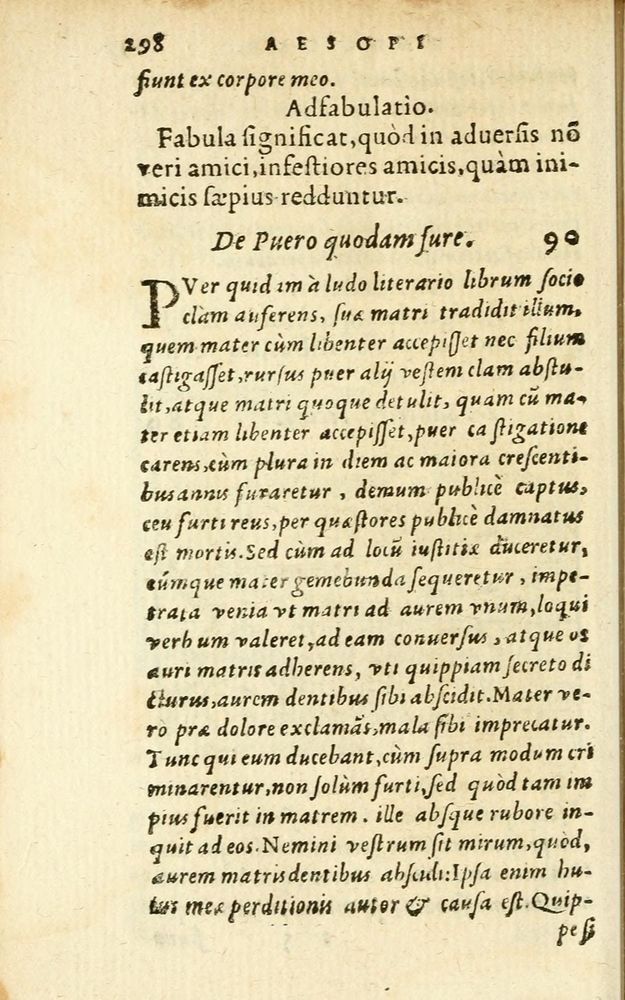 298 AESOPI
fiunt ex corpore meo.
Adfabulatio.
Fabula significat, quòd in aduersis nō
veri amici, infestiores amicis, quàm ini-
micis sæpius redduntur.
De Puero quodam fure. 90
PVer quidam à ludo literario librum socio
clàm auferens, suæ matri tradidit illum,
quem mater cùm libenter accepisset nec filium
castigasset, rursus puer alij vestem clam abstu-
lit, atque matri quoque detulit, quam cū ma-
ter etiam libenter accepisset, puer castigatione
carens, cùm plura in diem ac maiora crescenti-
bus annis furaretur, demum publicè captus,
ceu furti reus, per quæstores publicè damnatus
est mortis. Sed cùm ad locū iustitiæ duceretur,
cúmque mater gemebunda sequeretur, impe-
trata venia vt matri ad aurem vnum, loqui
verbum valeret, ad eam conuersus, atque os
auri matris adherens, vti quippiam secreto di
cturus, aurem dentibus sibi abscidit. Mater ve-
ro præ dolore exclamās, mala sibi imprecatur.
Tunc qui eum ducebant, cùm supra modum cri
minarentur, non solùm furti, sed quòd tam im
pius fuerit in matrem. ille absque rubore in-
quit ad eos. Nemini vestrum sit mirum, quòd,
aurem matris dentibus absculi: Ipsa enim hu-
ius meæ perditionis autor & causa est. Quip-
pe si